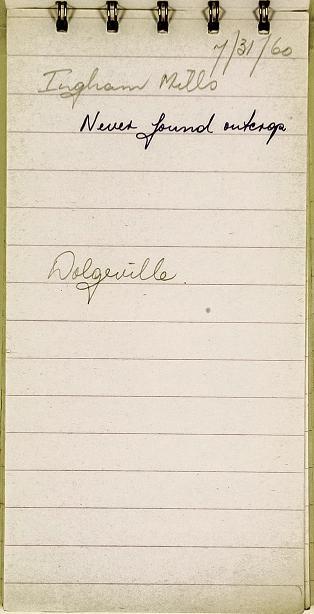 7/31/60
Ingham Mills
Never found outcrop
Dolgeville.